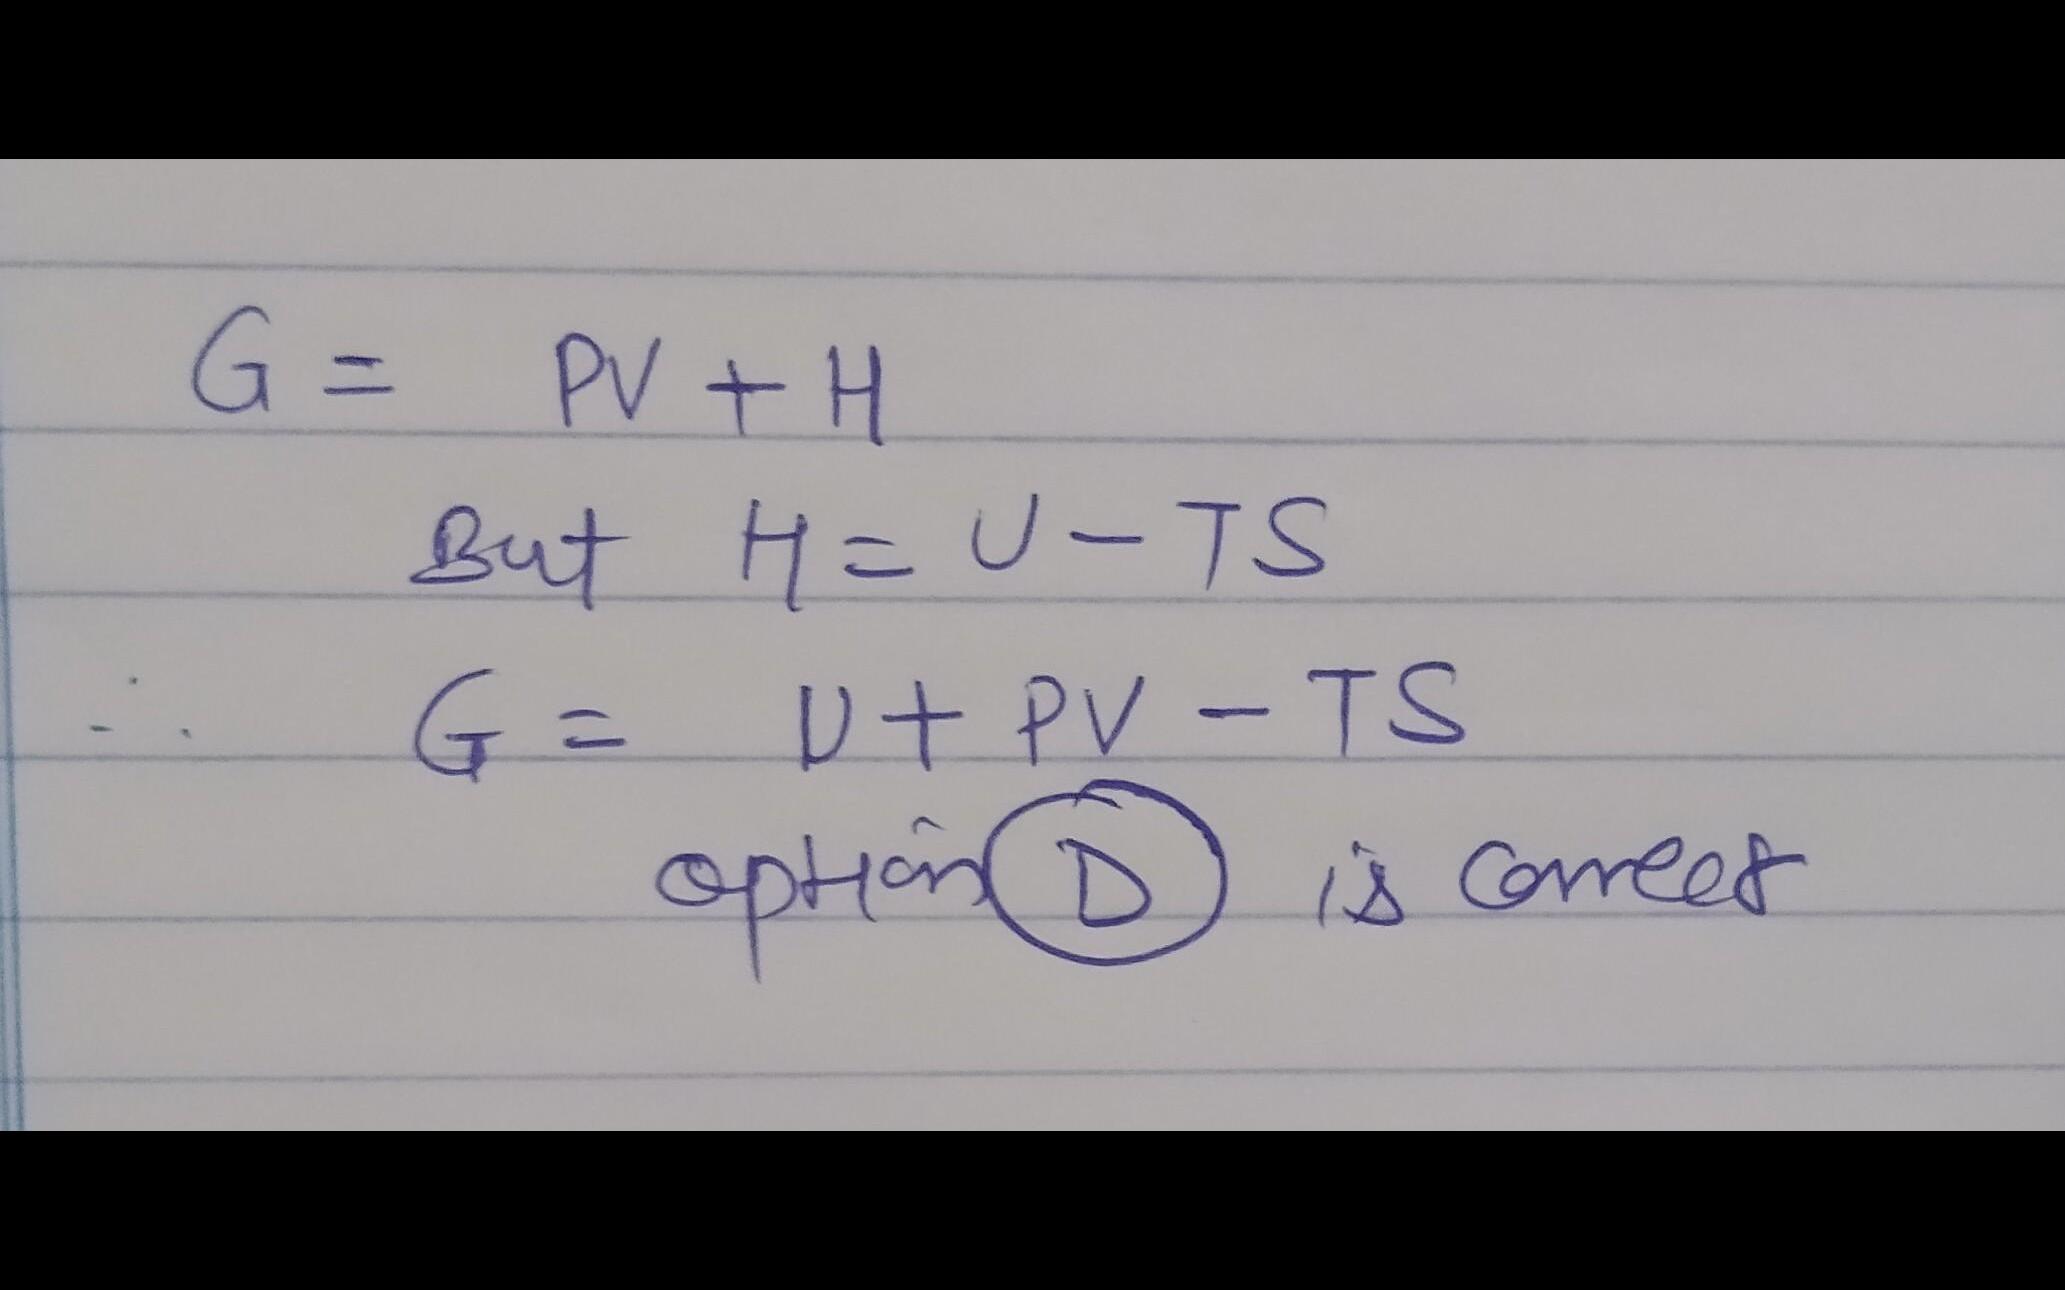 G = PV + H
But H = U - TS
∴ G = U + PV - TS
option D is correct